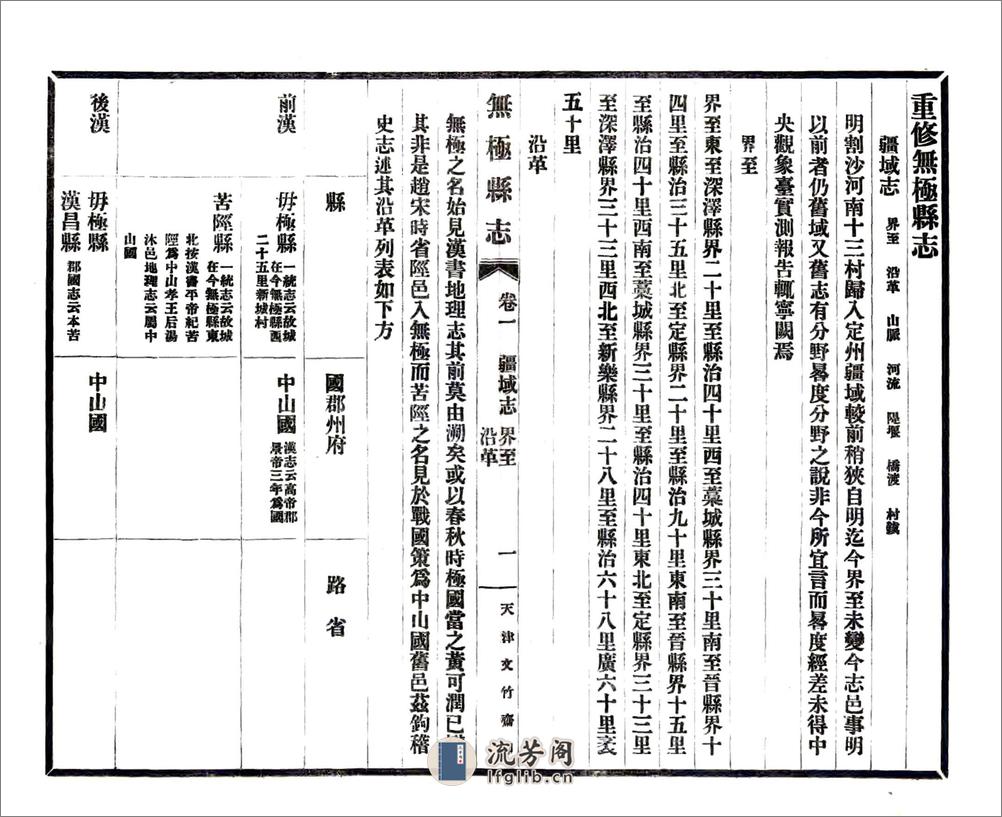 重修無極縣志
疆域志 界至 沿革 山脈 河流 隄堰 橋渡 村鎮
明割沙河南十三村歸入定州疆域較前稍狹自明迄今界至未變今志邑事明
以前者仍舊域又舊志有分野晷度分野之說非今所宜言而晷度經差未得中
央觀象臺實測報告輒寧闕焉
界至
界至東至深澤縣界二十里至縣治四十里西至藁城縣界三十里南至晉縣界十
四里至縣治三十五里北至定縣界二十里至縣治九十里東南至晉縣界十五里
至縣治四十里西南至藁城縣界三十里至縣治四十里東北至定縣界三十三里
至深澤縣界三十三里西北至新樂縣界二十八里至縣治六十八里廣六十里袤
五十里
沿革
無極縣志 卷一 疆域志 界至 沿革 一 天津文竹齋
無極之名始見漢書地理志其前莫由溯矣或以春秋時極國當之黃可潤已
其非是趙宋時省陘邑入無極而苦陘之名見於戰國策為中山國舊邑茲鉤稽
史志述其沿革列表如下方
縣 國郡州府 路省
前漢
毋極縣 一統志云故城在今無極縣西二十五里新城村
中山國 漢志云高帝郡景帝三年為國
苦陘縣 一統志云故城在今無極縣東北按漢書平帝紀苦陘為中山孝王后湯沐邑地理志云屬中山國
後漢
毋極縣
中山國
漢昌縣 郡國志云本苦
流芳阁
lfglib.cn